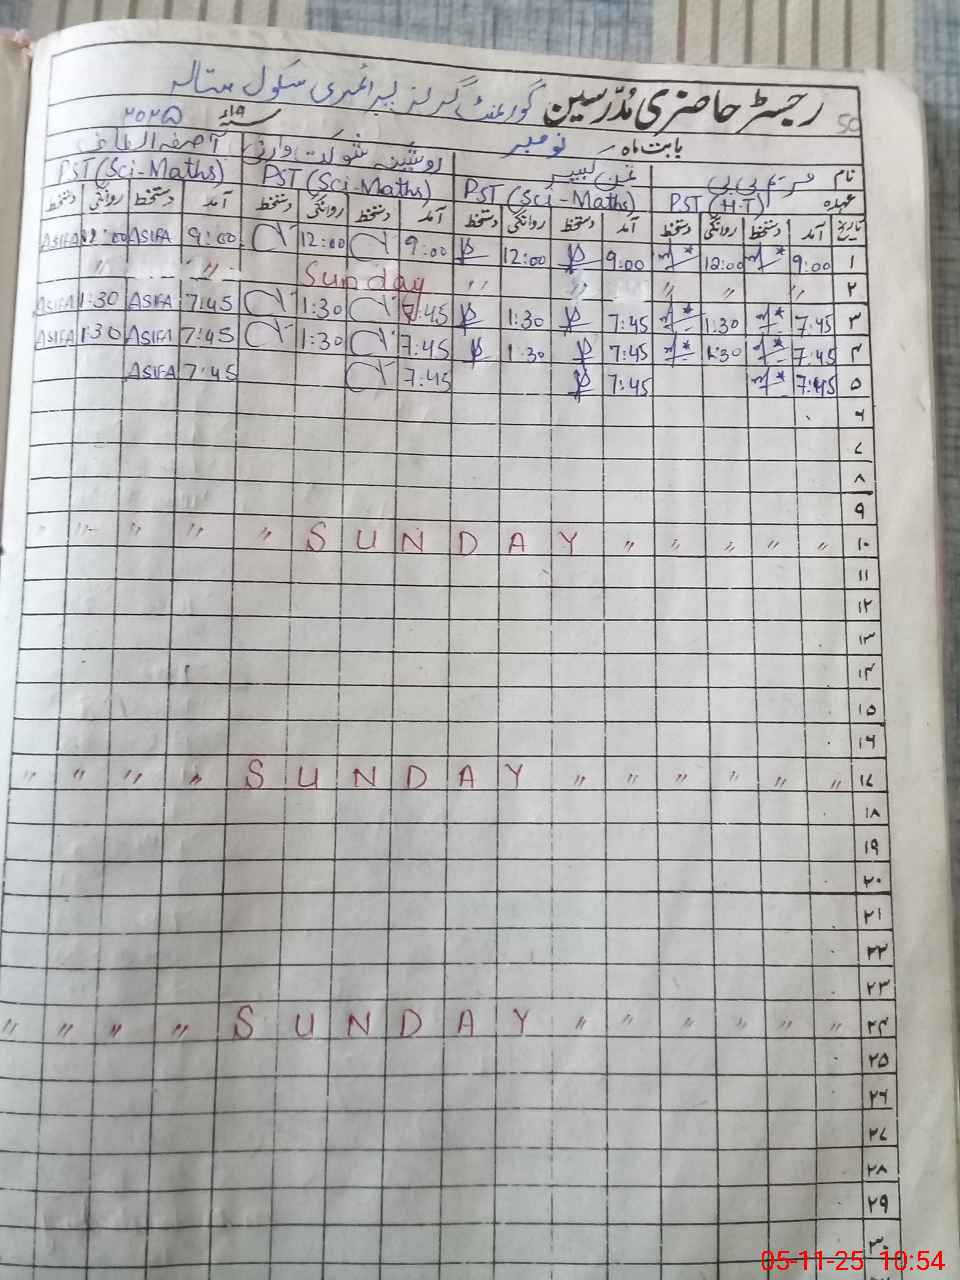 50
رجسٹر حاضری مُدرّسین گورنمنٹ گرلز پرائمری سکول متالہ
بابت ماہ نومبر سنہ ۱۹ء ۲۰۲۵
نام مریم بی بی روشینہ شوکت وارثی
عہدہ PST (H.T) PST (Sci-Maths) PST (Sci-Maths) PST (Sci-Maths)
تاریخ آمد دستخط روانگی دستخط آمد دستخط روانگی دستخط آمد دستخط روانگی دستخط آمد دستخط روانگی دستخط
۱ 9:00 12:00 9:00 12:00 9:00 12:00 9:00 ASIFA 12:00 ASIFA
۲ " " " " " Sunday " " "
۳ 7:45 1:30 7:45 1:30 7:45 1:30 7:45 ASIFA 1:30 ASIFA
۴ 7:45 1:30 7:45 1:30 7:45 1:30 7:45 ASIFA 1:30 ASIFA
۵ 7:45 7:45 7:45 7:45 ASIFA
۶
۷
۸
۹
۱۰ " " " " " SUNDAY " " " " "
۱۱
۱۲
۱۳
۱۴
۱۵
۱۶
۱۷ " " " " " " SUNDAY " " " "
۱۸
۱۹
۲۰
۲۱
۲۲
۲۳
۲۴ " " " " " " SUNDAY " " " "
۲۵
۲۶
۲۷
۲۸
۲۹
۳۰
05-11-25 10:54